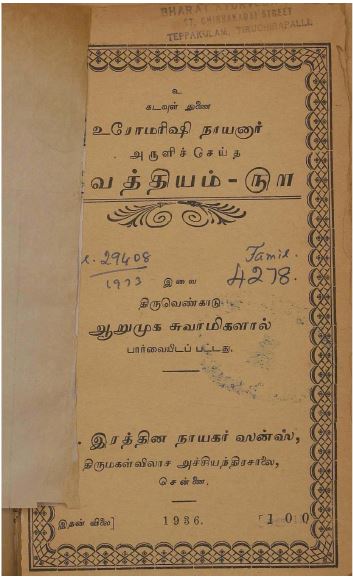 BHARAT
ST. CHINNAKADAI STREET
TEPPAKULAM, TIRUCHIRAPALLI.
உ
கடவுள் துணை
உரோமரிஷி நாயனார்
அருளிச் செய்த
வத்தியம் - ௫௱
29408
1973
Tamil.
4278.
இவை
திருவெண்காடு
ஆறுமுக சுவாமிகளால்
பார்வையிடப் பட்டது.
. இரத்தின நாயகர் ஸன்ஸ்,
திருமகள்விலாச அச்சியந்திரசாலை,
சென்னை.
இதன் விலை]
1936.
[ 1 0 0